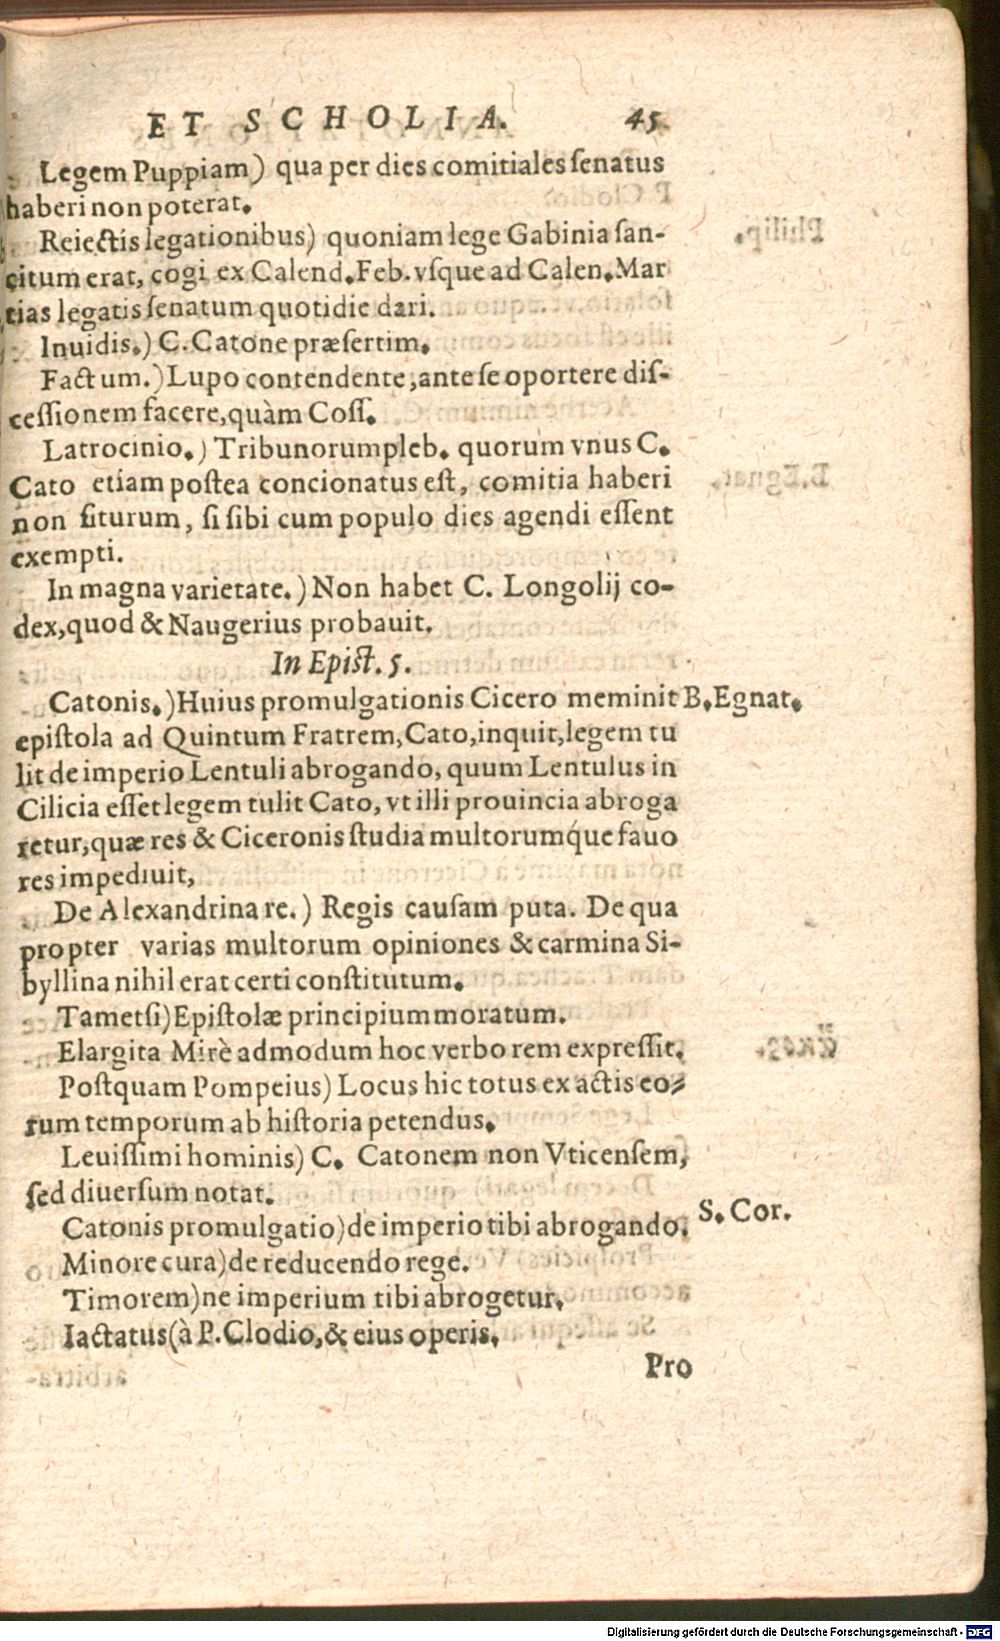 ET SCHOLIA. 45
Legem Puppiam) qua per dies comitiales ſenatus
haberi non poterat.
Reiectis legationibus) quoniam lege Gabinia ſan-
citum erat, cogi ex Calend. Feb. vſque ad Calen. Mar
tias legatis ſenatum quotidie dari.
Inuidis.) C. Catone præſertim.
Factum.) Lupo contendente, ante ſe oportere diſ-
ceſſionem facere, quàm Coſſ.
Latrocinio.) Tribunorum pleb. quorum vnus C.
Cato etiam poſtea concionatus eſt, comitia haberi
non ſiturum, ſi ſibi cum populo dies agendi eſſent
exempti.
In magna varietate.) Non habet C. Longolij co-
dex, quod & Naugerius probauit.
In Epiſt. 5.
Catonis.) Huius promulgationis Cicero meminit B. Egnat.
epiſtola ad Quintum Fratrem, Cato, inquit, legem tu
lit de imperio Lentuli abrogando, quum Lentulus in
Cilicia eſſet legem tulit Cato, vt illi prouincia abroga
retur, quæ res & Ciceronis ſtudia multorumq́ue fauo
res impediuit,
De Alexandrina re.) Regis cauſam puta. De qua
propter varias multorum opiniones & carmina Si-
byllina nihil erat certi conſtitutum.
Tametſi) Epiſtolæ principium moratum.
Elargita Mirè admodum hoc verbo rem expreſſit.
Poſtquam Pompeius) Locus hic totus ex actis eo-
rum temporum ab hiſtoria petendus.
Leuiſſimi hominis) C. Catonem non Vticenſem,
ſed diuerſum notat.
Catonis promulgatio) de imperio tibi abrogando. S. Cor.
Minore cura) de reducendo rege.
Timorem) ne imperium tibi abrogetur.
Iactatus (à P. Clodio, & eius operis.
Pro
Digitalisierung gefördert durch die Deutsche Forschungsgemeinschaft - DFG